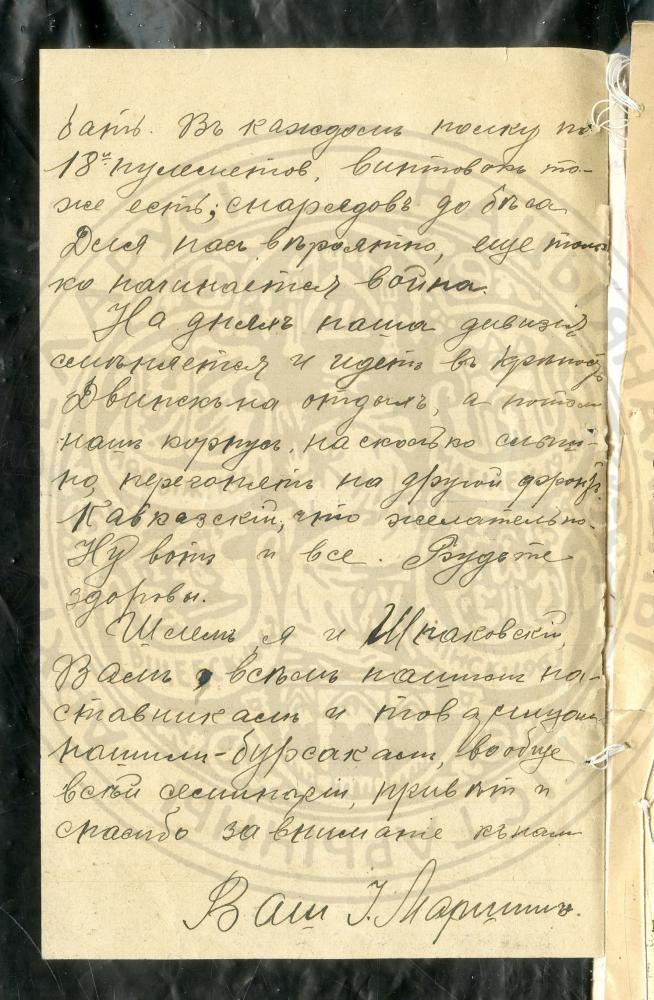 бать. Въ каждомъ полку по
18и пулеметовъ, винтовокъ то-
же есть; снарядовъ до бѣса
Для насъ, вѣроятно, еще толь-
ко начинается война.
На дняхъ наша дивизія
смѣняется и идетъ въ крѣпость
Двинскъ на отдыхъ, а потомъ
нашъ корпусъ, насколько слыш-
но, перегонятъ на другой фронтъ
Кавказскій, что желательно.
Ну вотъ и все. Будьте
здоровы.
Шлемъ я и Шпаковскій
Вамъ, всѣмъ нашимъ на-
ставникамъ и товарищамъ
нашимъ-бурсакамъ, вообще
всѣй семинаріи, привѣтъ и
спасибо за вниманіе къ намъ
Ваш І.